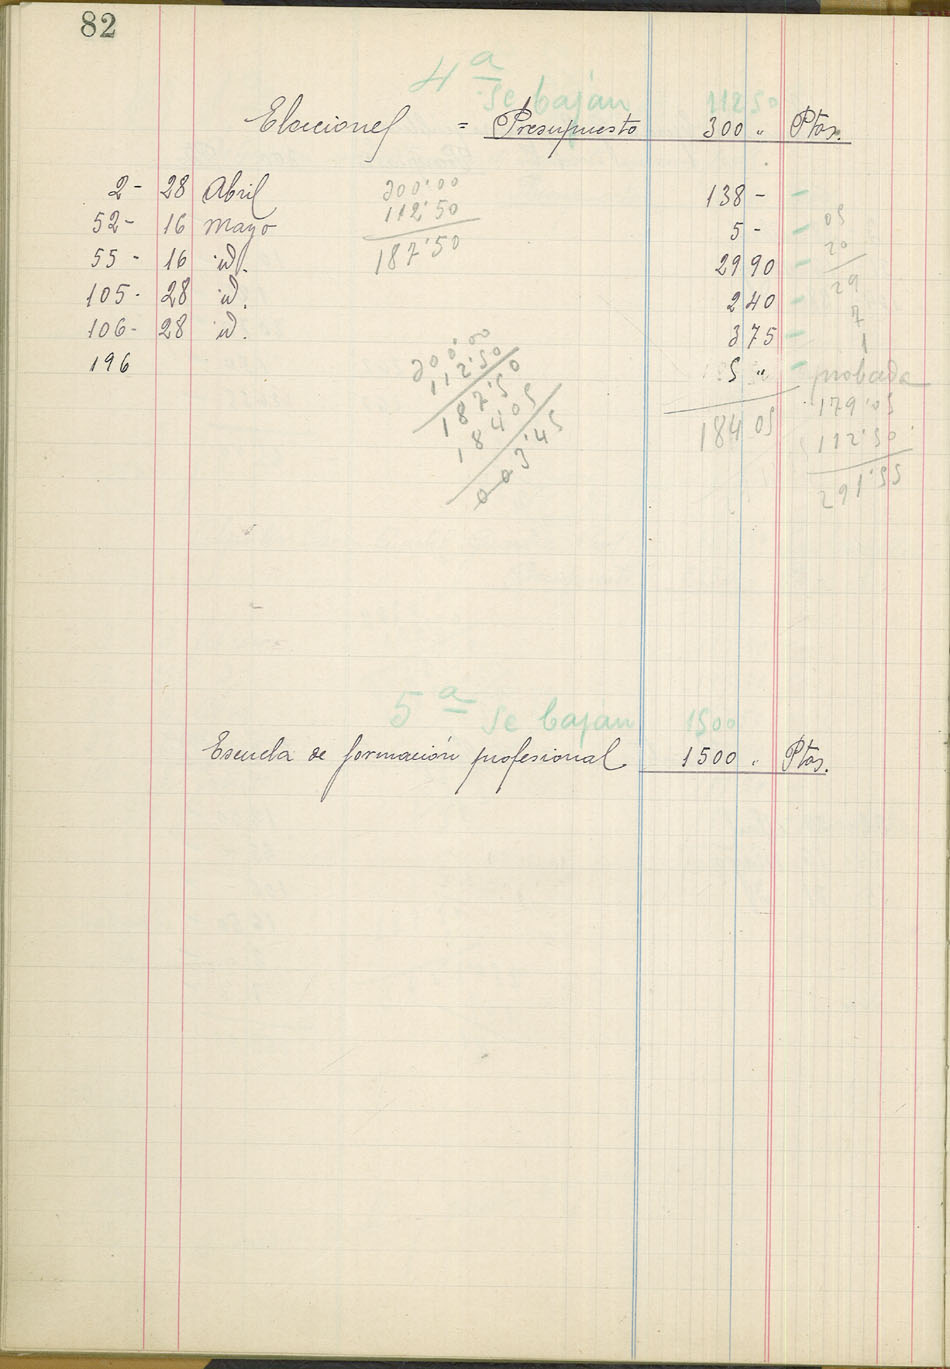 82
4ª
se bajan 112 50
Elecciones = Presupuesto 300 " Ptas.
2- 28 Abril 138 -
52- 16 Mayo 5 -
55 - 16 id. 29 90
105- 28 id. 2 40
106- 28 id. 3 75
196 5 "
184 05
300'00
112'50
187'50
300'00
112'50
187'50
184 05
003'45
05
20
29
7
1
probada
179'05
112'50
291'55
5ª se bajan 1500
Escuela de formación profesional 1500 " Ptas.